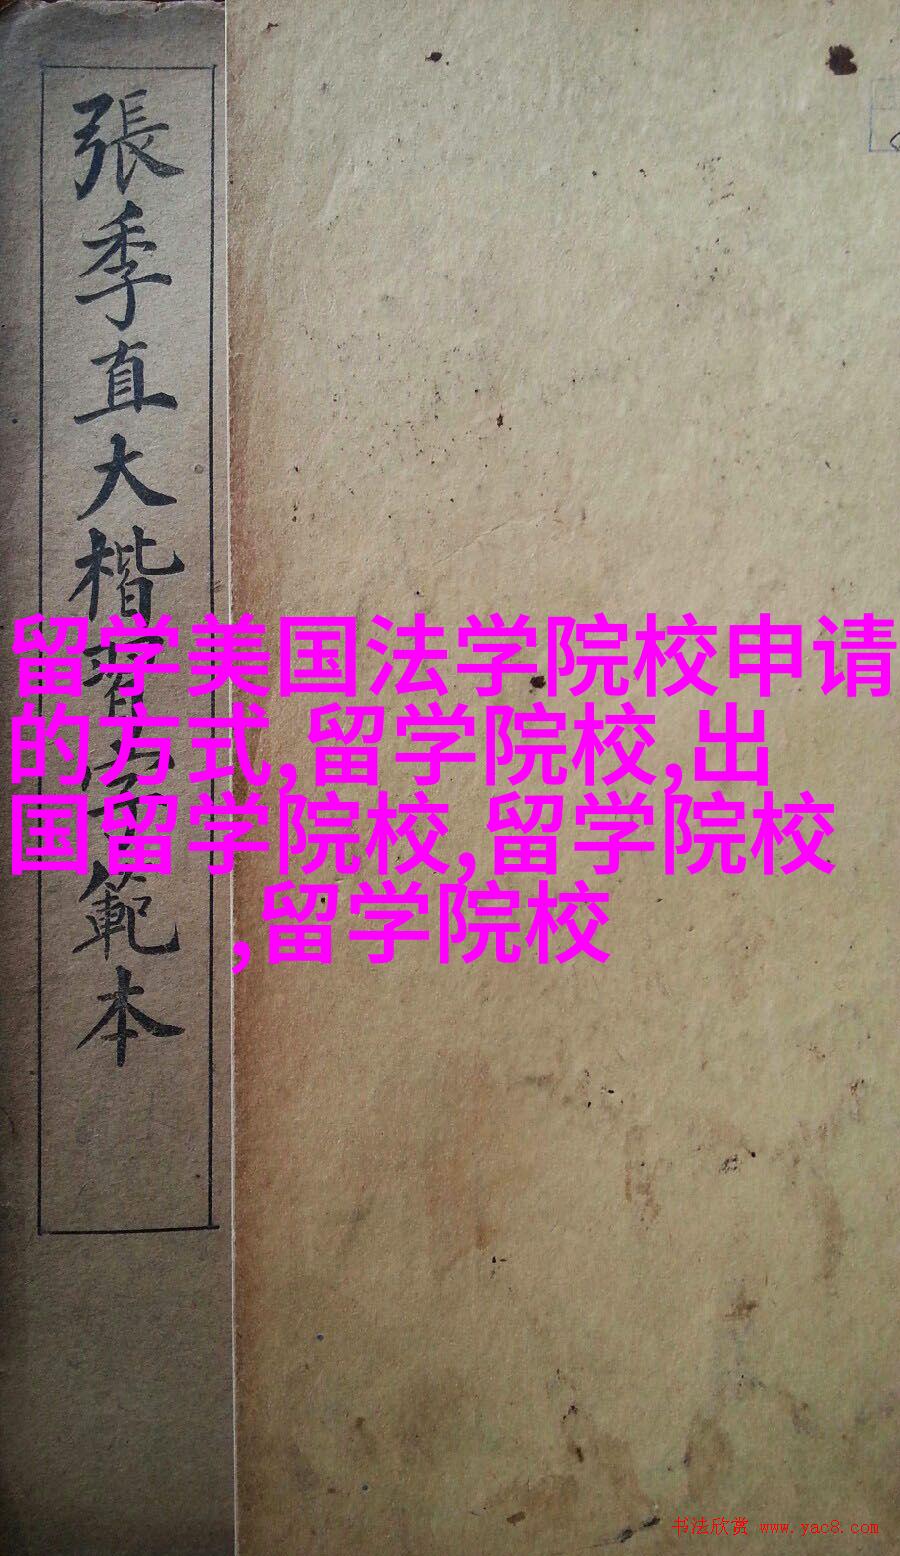 張季直大楷習字範本
留学美国法学院校申请
的方式,留学院校,出
国留学院校,留学院校
,留学院校
书法欣赏 www.yac8.com